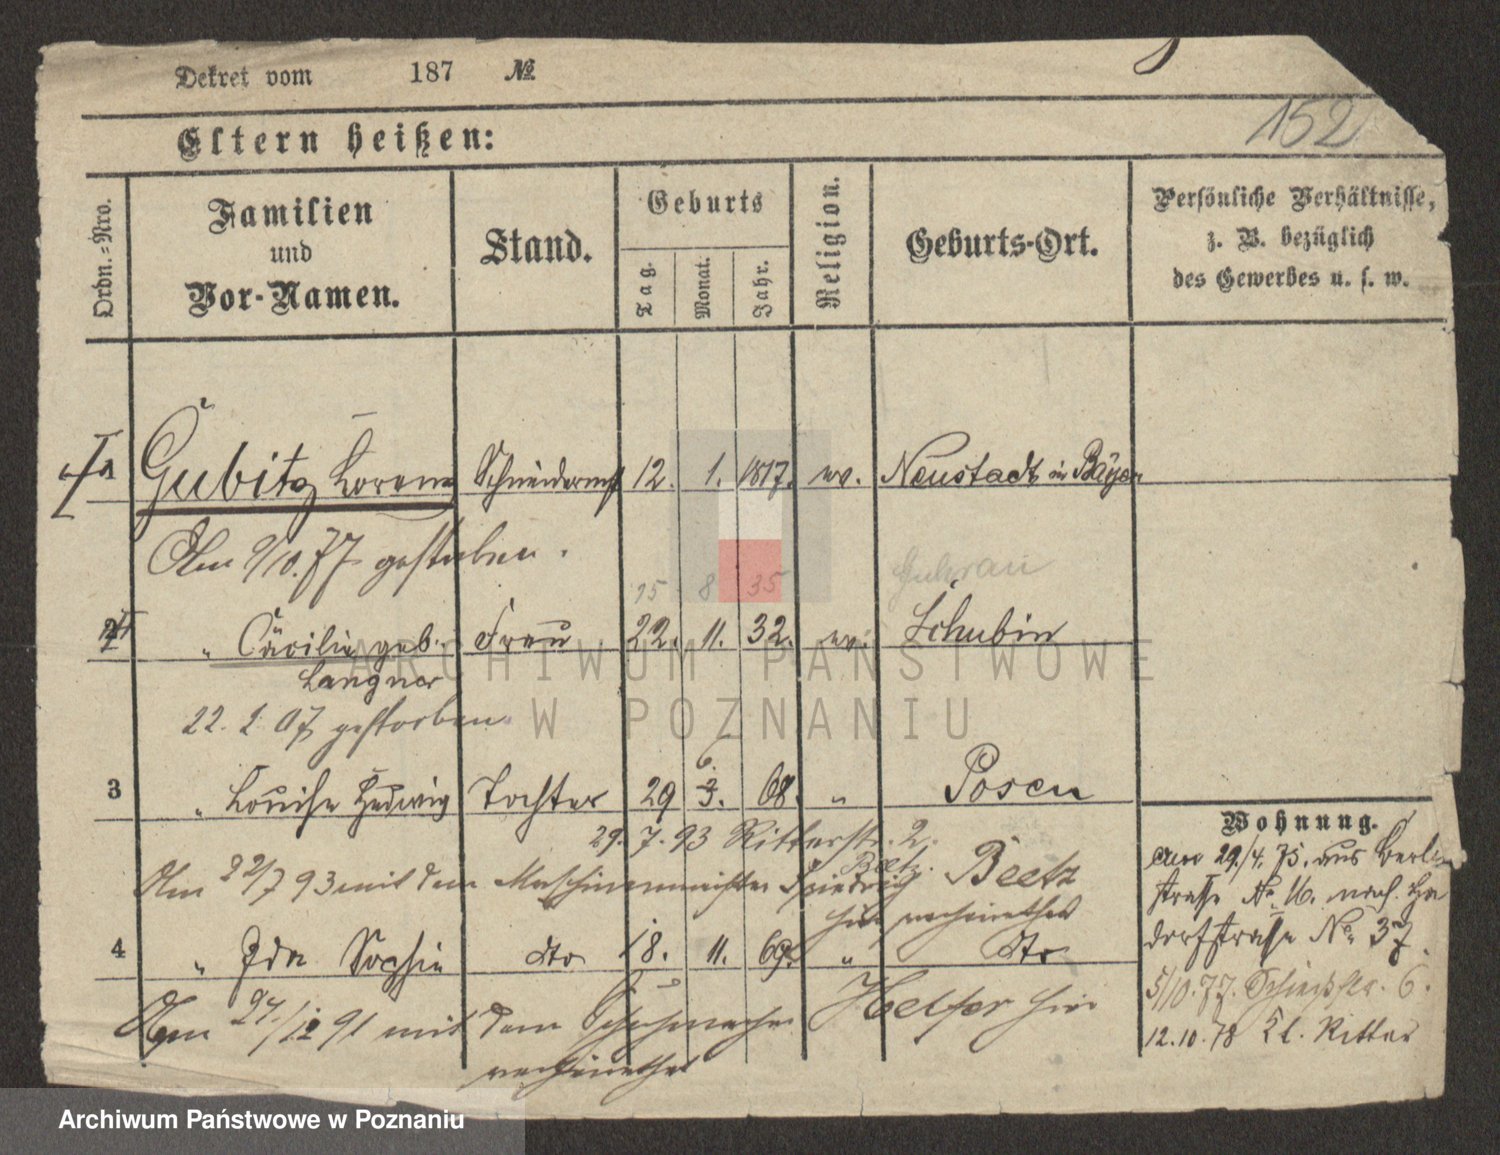 Dekret vom 187 №
152
Eltern heißen:
Ordn.=Nro.
Familien
und
Vor-Namen.
Stand.
Geburts
Tag.
Monat.
Jahr.
Religion.
Geburts-Ort.
Persönliche Verhältnisse,
z. B. bezüglich
des Gewerbes u. s. w.
1 Gubitz Lorenz Schneidermst 12. 1. 1817. ev. Neustadt in Bayern
Am 9/10. 77 gestorben.
15 8 35 Guhrau
2 " Cäcilie geb. Frau 22. 11. 32. ev. Schubin
Langner
22. 1. 07 gestorben
6.
3 " Louise Hedwig Tochter 29 3. 68. " Posen
29. 7. 93 Ritterstr. 2.
Am 22/7 93 mit dem Maschinenmeister Friedrich Beetz
hier verheirathet
4 " Ida Sophie dto 18. 11. 69. " dto
Am 24/12 91 mit dem Schuhmacher Helfer hier
verheirathet
Wohnung.
am 29./4. 75. aus Berli
strasse No 16. nach
dorfstrasse No 37.
5/10. 77. Schiesstr. 6.
12. 10. 78 Kl. Ritter
ARCHIWUM PAŃSTWOWE
W POZNANIU
Archiwum Państwowe w Poznaniu